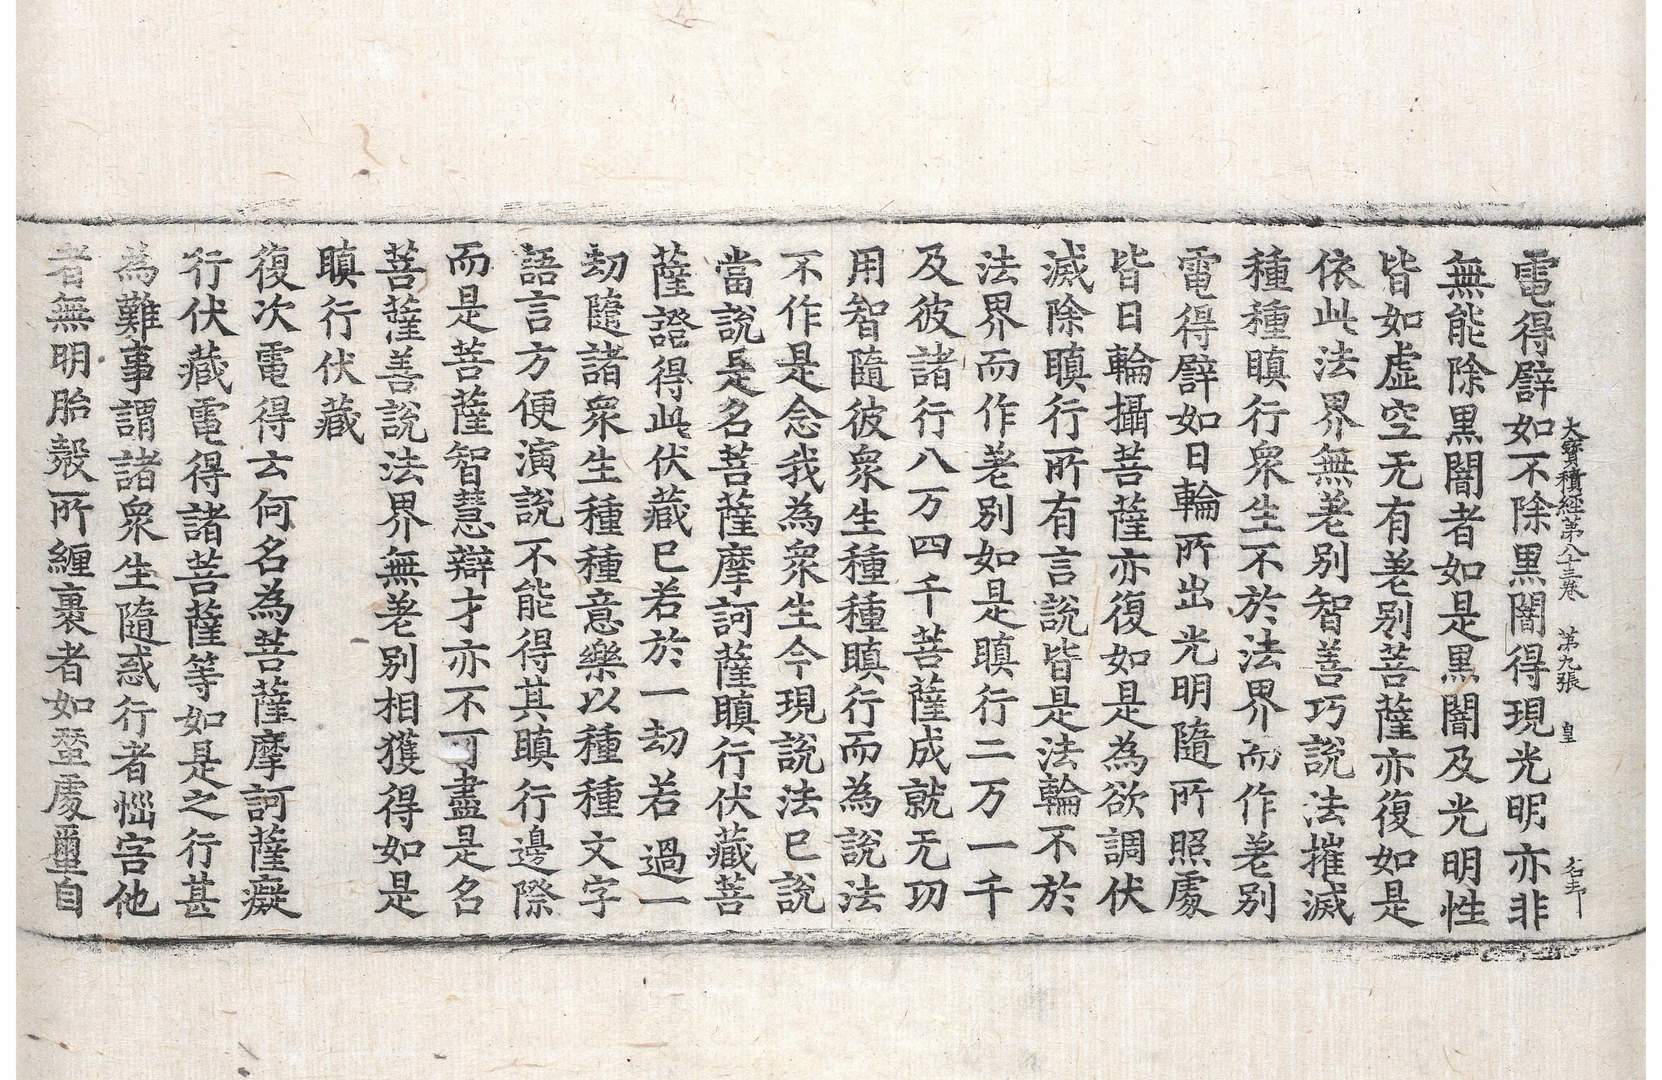 大寶積經第八十三卷　第九張　皇
電得譬如不除黒闇得現光明亦非
無能除黒闇者如是黒闇及光明性
皆如虛空无有差别菩薩亦復如是
依此法界無差别智善巧說法摧滅
種種瞋行衆生不於法界而作差别
電得譬如日輪所出光明隨所照處
皆日輪攝菩薩亦復如是為欲調伏
滅除瞋行所有言說皆是法輪不於
法界而作差别如是瞋行二万一千
及彼諸行八万四千菩薩成就无功
用智隨彼衆生種種瞋行而為說法
不作是念我為衆生今現說法已說
當說是名菩薩摩訶薩瞋行伏藏菩
薩證得此伏藏已若於一劫若過一
劫隨諸衆生種種意樂以種種文字
語言方便演說不能得其瞋行邊際
而是菩薩智慧辯才亦不可盡是名
菩薩善說法界無差别相獲得如是
瞋行伏藏
復次電得云何名為菩薩摩訶薩癡
行伏藏電得諸菩薩等如是之行甚
為難事謂諸衆生隨惑行者惱害他
者無明胎㲉所纏裹者如蚕處繭自